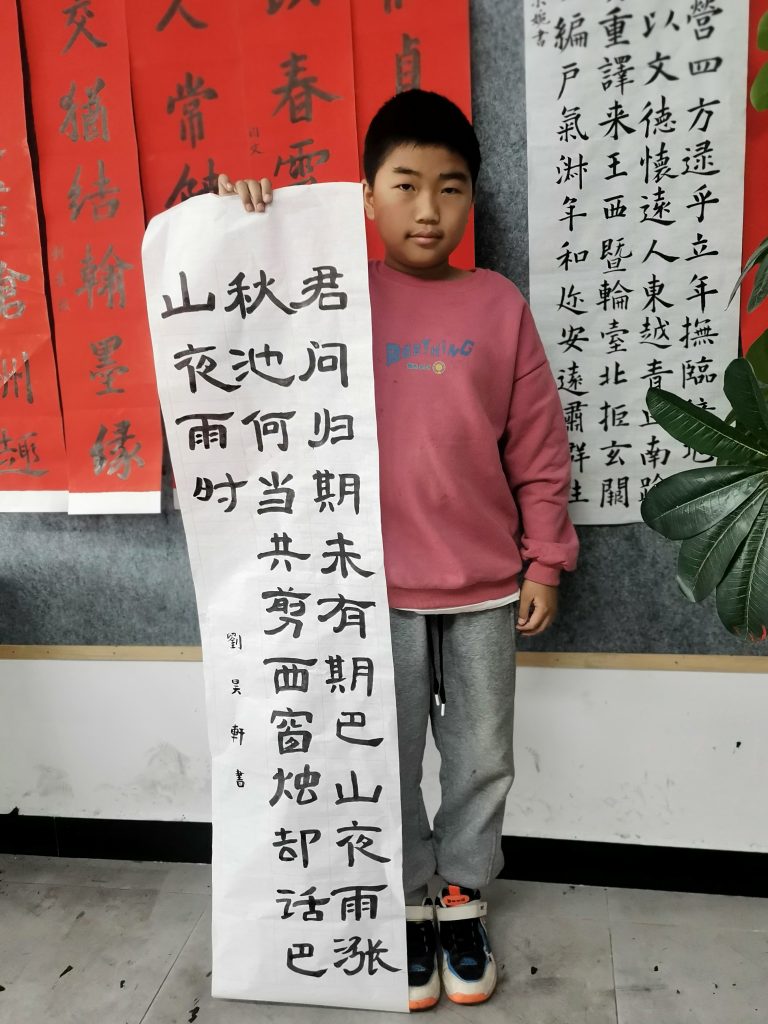 君问归期未有期巴山夜雨涨
秋池何当共剪西窗烛却话巴
山夜雨时
劉昊軒書
營四方逮乎立年撫臨
以文德懷遠人東越青丘南踰
重譯来王西暨輪臺北拒玄闕
編戸氣淑年和迩安遠肅群生
婉書
貞
春雲
人常
交猶结翰墨缘
滄洲趣